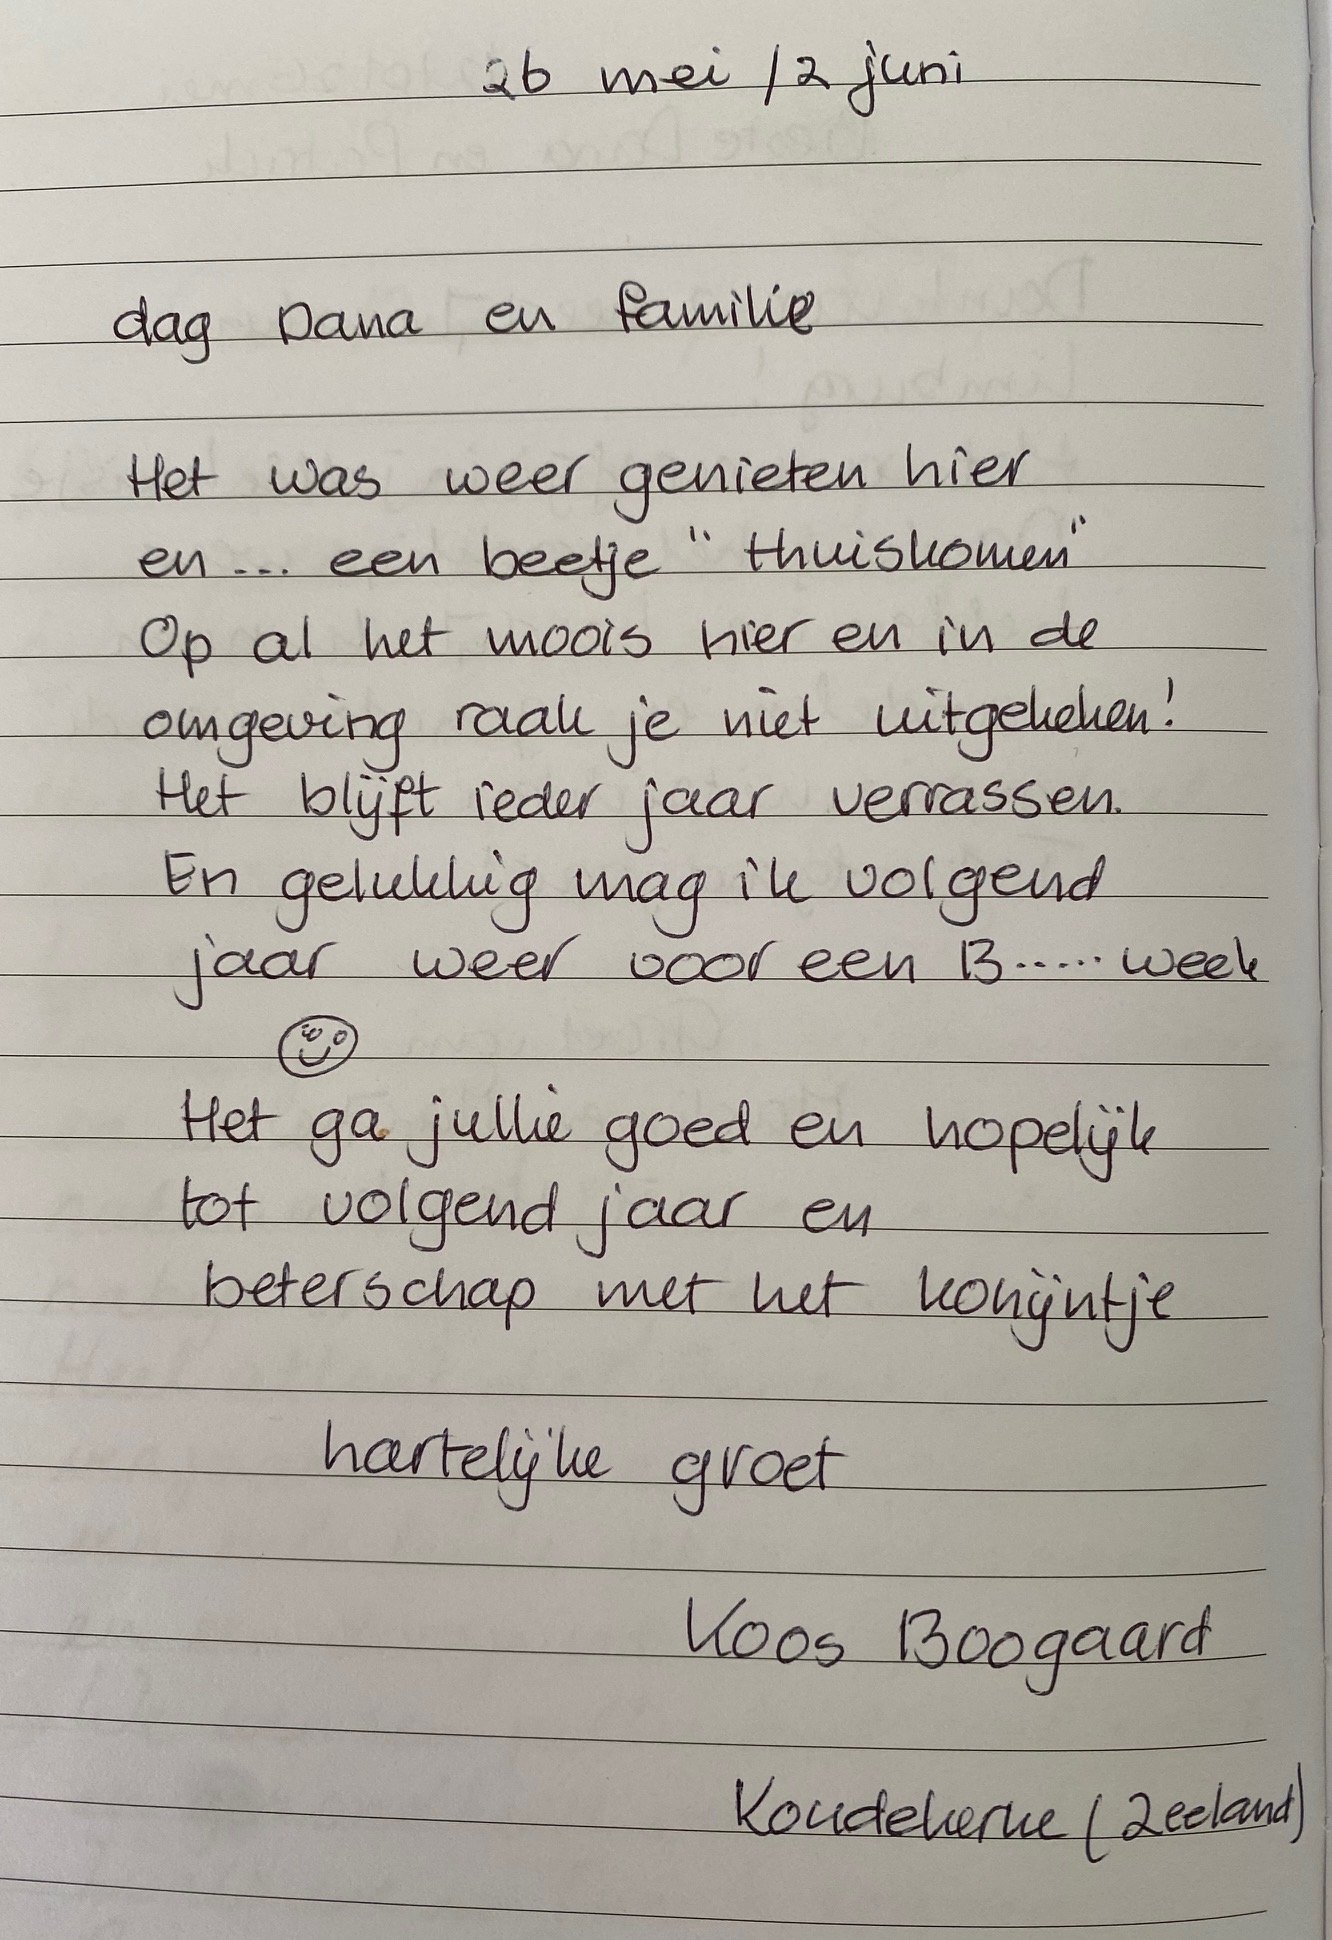 26 mei / 2 juni
dag Dana en familie
Het was weer genieten hier
en ... een beetje "thuiskomen"
Op al het moois hier en in de
omgeving raak je niet uitgekeken!
Het blijft ieder jaar verrassen.
En gelukkig mag ik volgend
jaar weer voor een B..... week
Het ga jullie goed en hopelijk
tot volgend jaar en
beterschap met het konijntje
hartelijke groet
Koos Boogaard
Koudekerke (Zeeland)